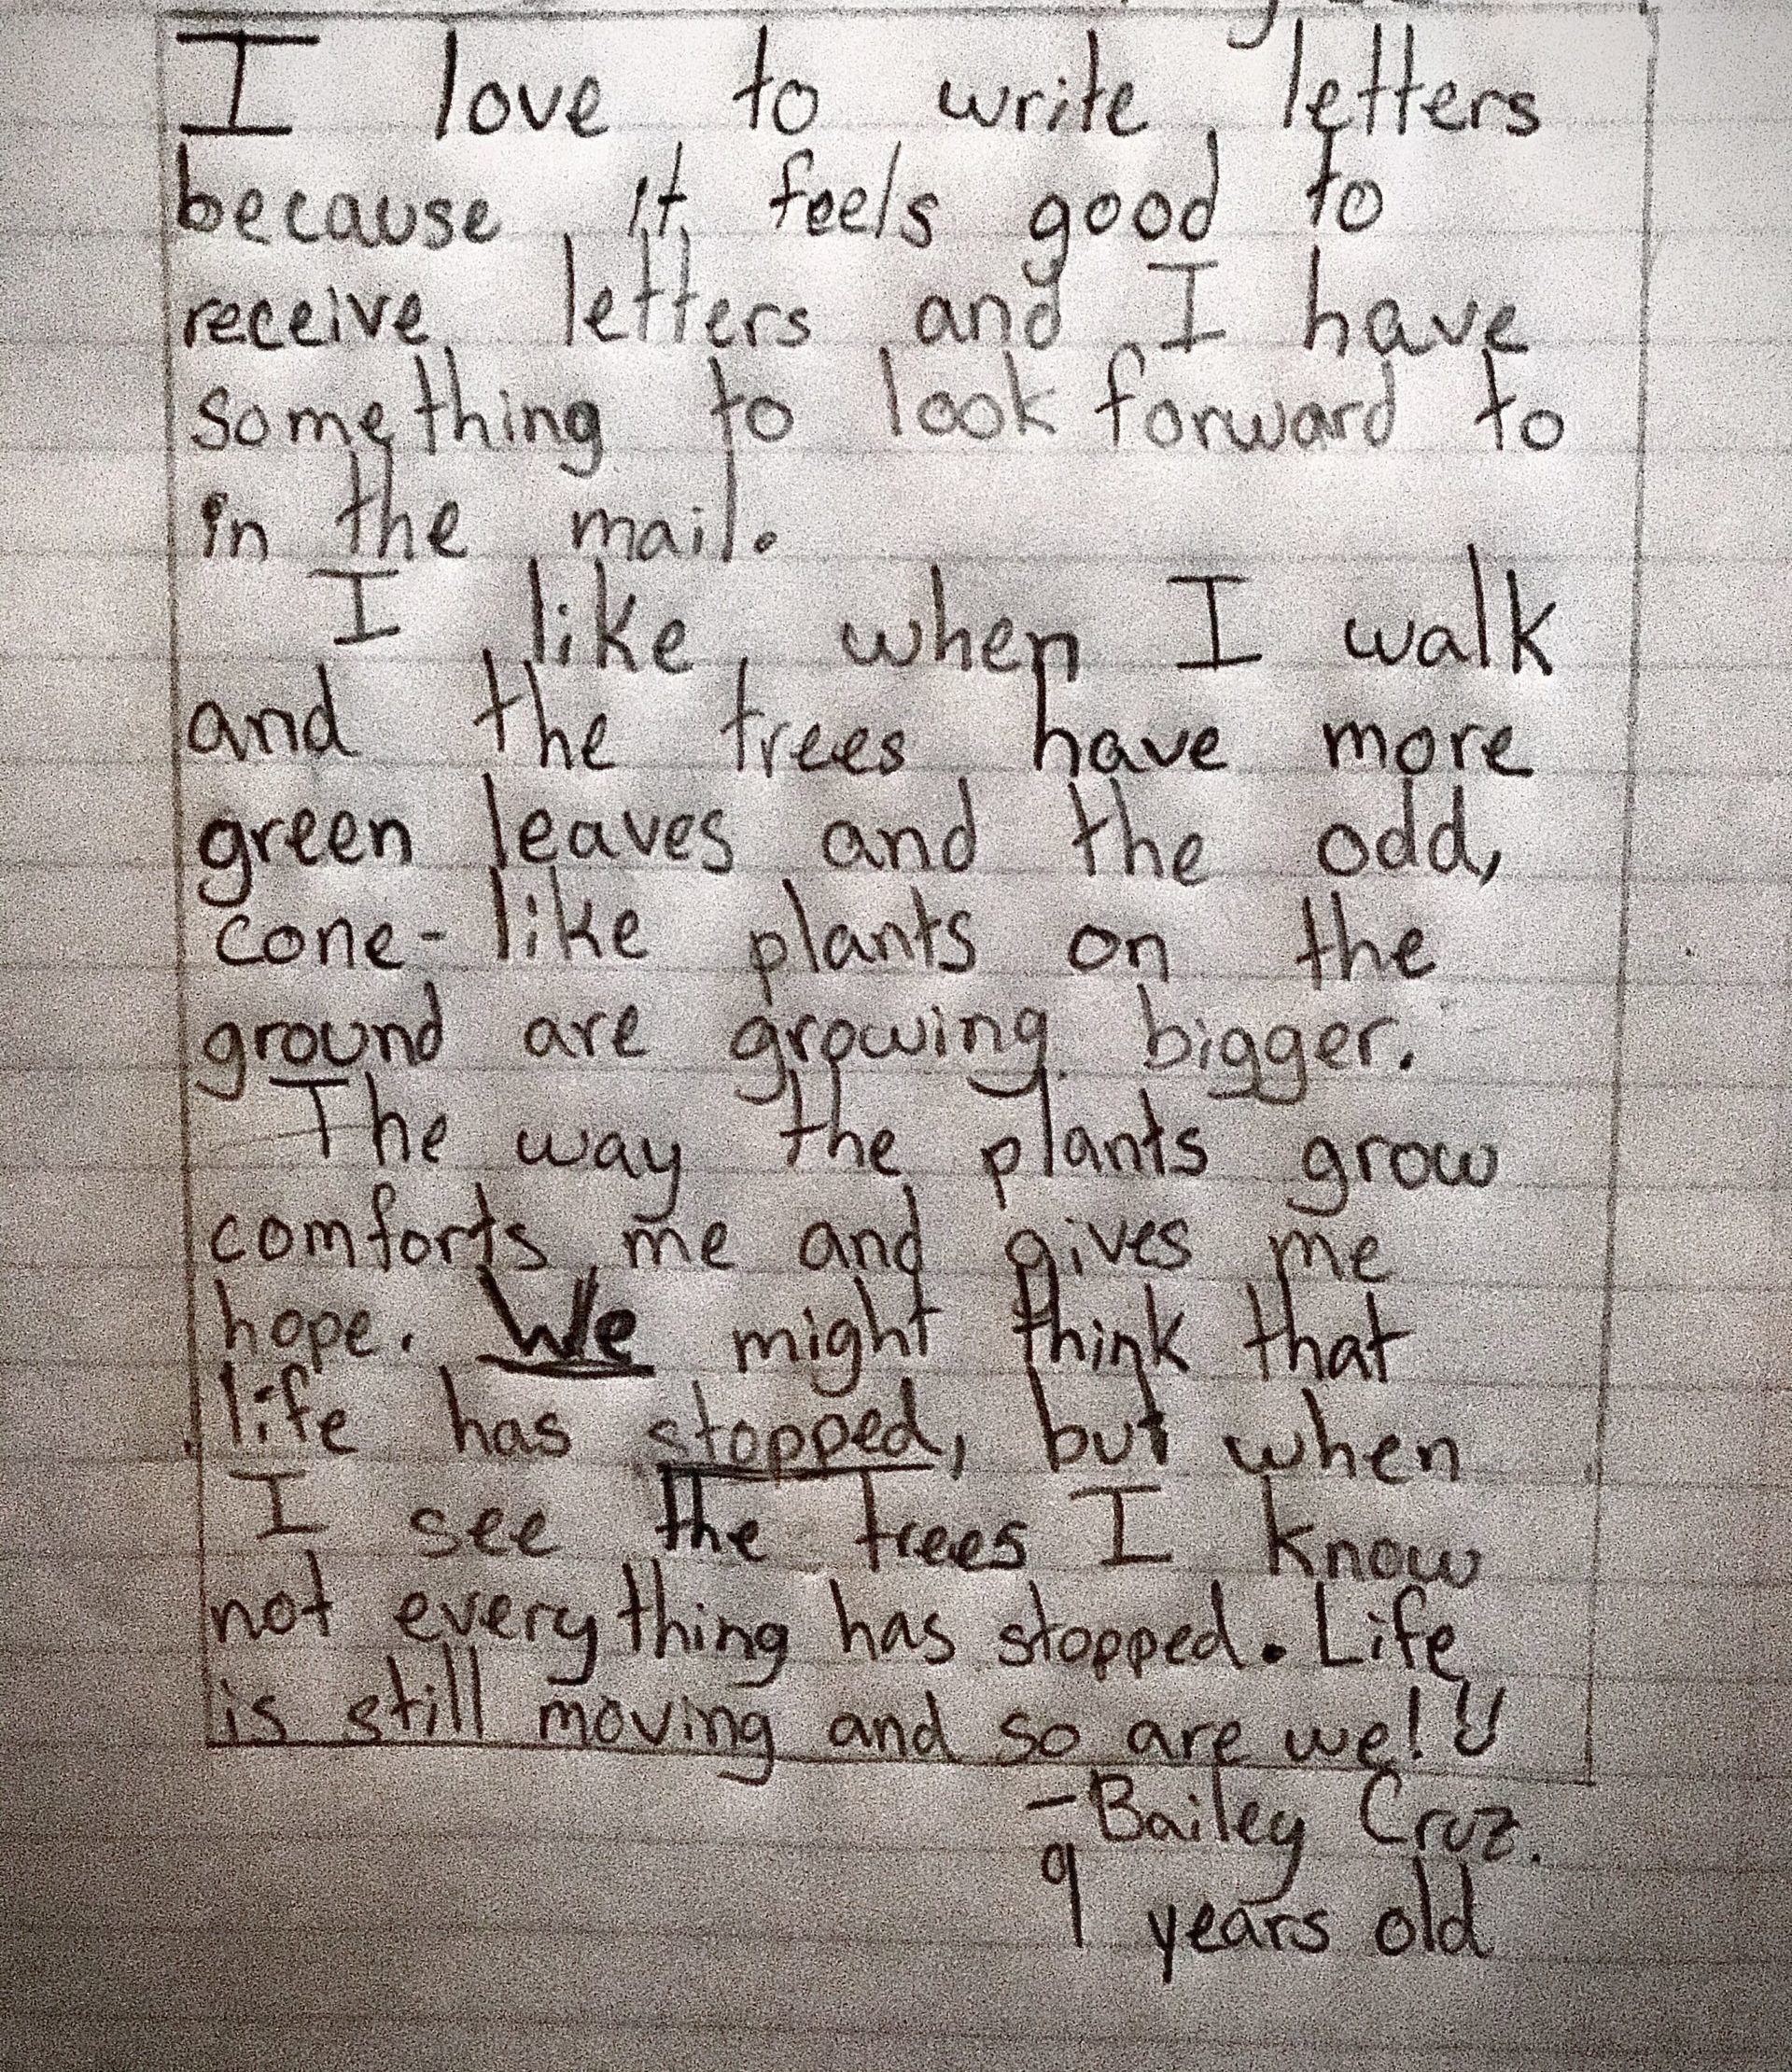 I love to write letters
because it feels good to
receive letters and I have
something to look forward to
in the mail.
I like when I walk
and the trees have more
green leaves and the odd,
cone-like plants on the
ground are growing bigger.
The way the plants grow
comforts me and gives me
hope. We might think that
life has stopped, but when
I see the trees I know
not everything has stopped. Life
is still moving and so are we!
-Bailey Cruz.
9 years old